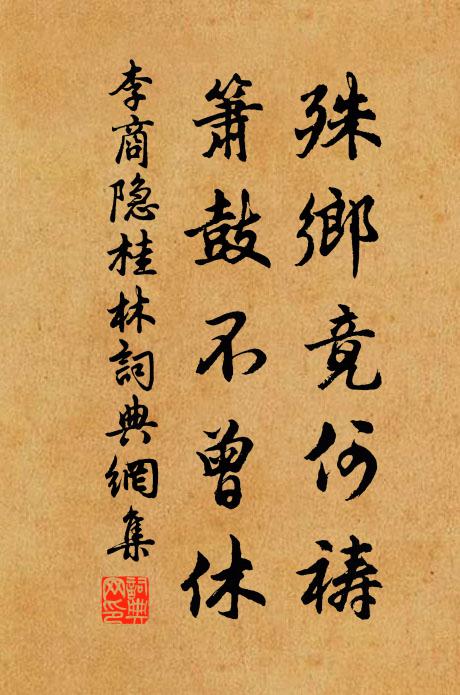 殊鄉竟何禱
簫鼓不曾休
李商隐桂林詞典網集
詞典網印